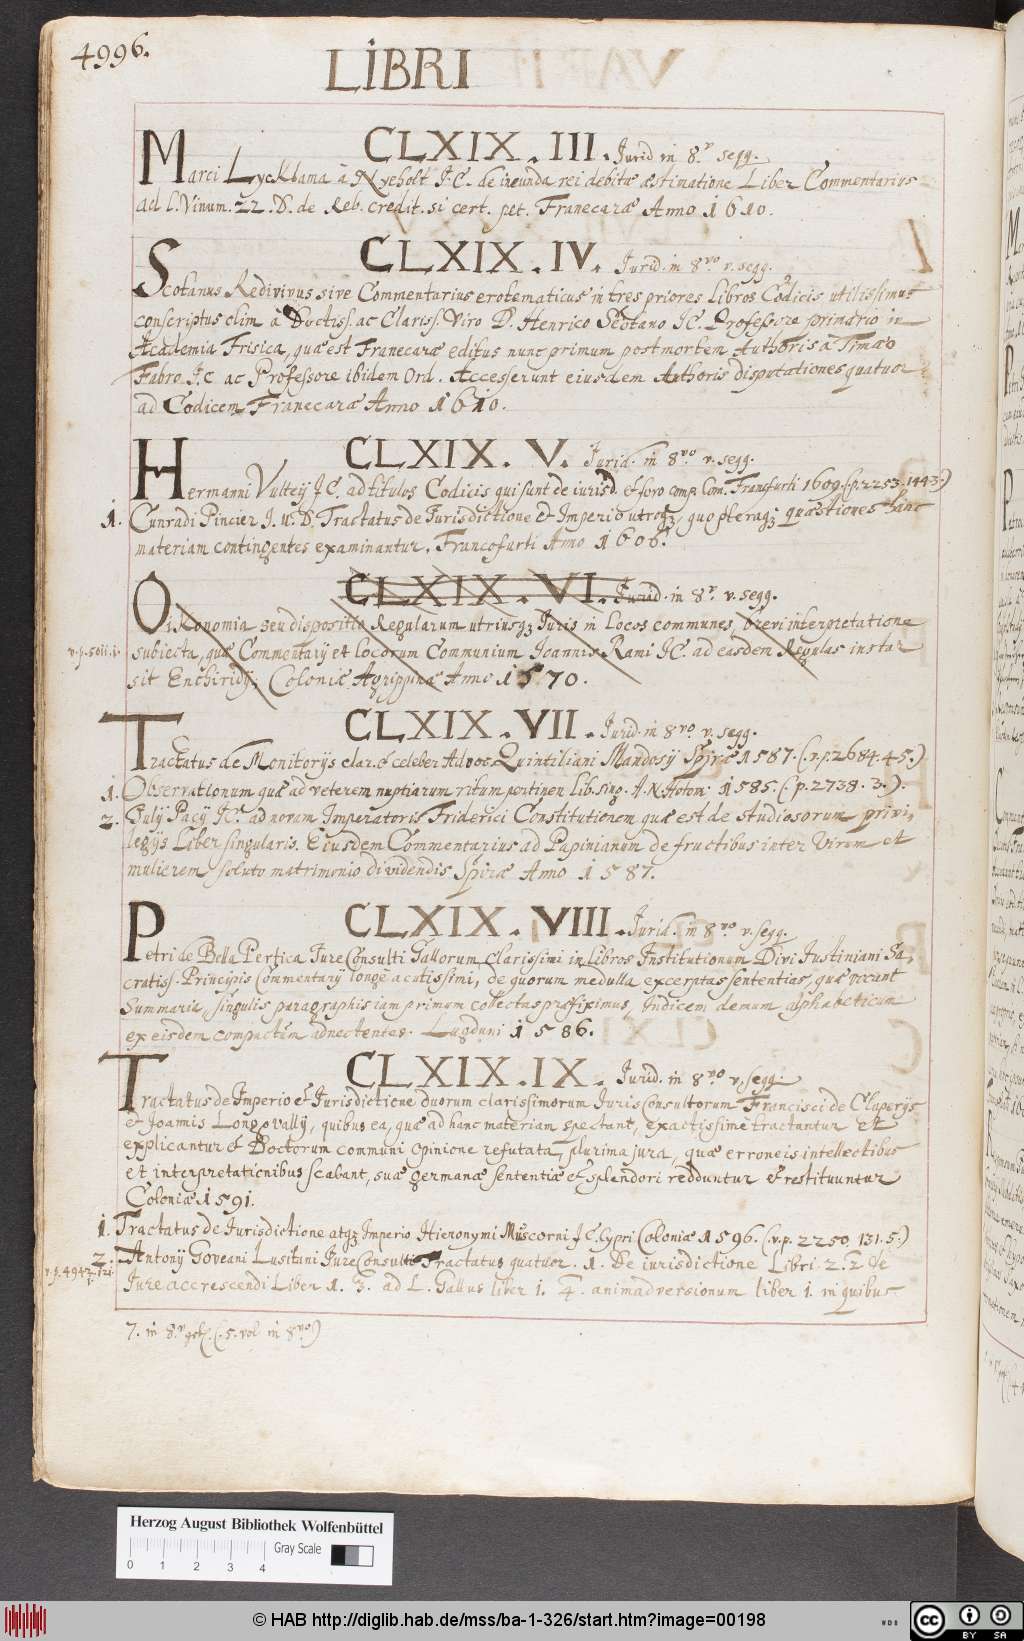 4996.
LIBRI
CLXIX. III. Jurid in 8.º segg.
Marci Lycklama à Nyeholt J.C. de ineunda rei debitæ æstimatione Liber Commentarius
ad l. Vinum. 22. D. de Reb. credit. si cert. pet. Franecaræ Anno 1610.
CLXIX. IV. Jurid. in 8.vo v. segg.
Scotanus Redivivus sive Commentarius erotematicus in tres priores Libros Codicis utilissimus
conscriptus olim à Doctiss. ac Clariss. Viro D. Henrico Scotano JC. Professore primario in
Academia Frisica, quæ est Franecaræ editus nunc primum post mortem Authoris à Timæo
Fabro J.C. ac Professore ibidem Ord. Accesserunt eiusdem Authoris disputationes quatuor
ad Codicem Franecaræ Anno 1610.
CLXIX. V. Jurid. in 8vo v. segg.
Hermanni Vulteij JC. ad titulos Codicis qui sunt de iurisd. et foro comp. Com. Francfurti 1609. (p. 2253. 1443.)
1. Cunradi Pincier J.U.D. Tractatus de Jurisdictione et Imperio utroqz, quo pleraqz quæstiones hanc
materiam contingentes examinantur. Francofurti Anno 1606.
CLXIX. VI. Jurid. in 8º. v. segg.
Oikonomia seu dispositio Regularum utriusqz Juris in Locos communes, brevi interpretatione
v.p. 5011. 1.
subiecta, quæ Commentarij et locorum Communium Joannis Rami JC. ad easdem Regulas instar
sit Enchiridij, Coloniæ Agrippinæ Anno 1570.
CLXIX. VII. Jurid. in 8vo v. segg.
Tractatus de Monitorijs clar. et celeber Advoc. Quintiliani Mandosij Spiræ 1587. (v.p. 2684. 45.)
1. Observationum quæ ad veterem nuptiarum ritum pertinen Lib. sing. A.N. Hotom. 1585. (p. 2738. 3.)
2. Julij Pacij JC. ad novam Imperatoris Friderici Constitutionem quæ est de studiosorum privi,
legijs Liber singularis. Eiusdem Commentarius ad Papinianum de fructibus inter Virum et
mulierem soluto matrimonio dividendis Spiræ Anno 1587.
CLXIX. VIII. Jurid. in 8vo v. segg.
Petri de Bella Pertica Jure Consulti Gallorum Clarissimi in Libros Institutionum Divi Justiniani Sa,
cratiss. Principis Commentarij longè acutissimi, de quorum medulla excerptas sententias, quæ vocant
Summaria, singulis paragraphis iam primum collectas præfiximus, Indicem demum alphabeticum
ex eisdem compactum adnectentes. Lugduni 1586.
CLXIX. IX. Jurid. in 8vo v. segg.
Tractatus de Imperio et Jurisdictione duorum clarissimorum Juris Consultorum Francisci de Claperijs
et Joannis Longovallij, quibus ea, quæ ad hanc materiam spectant, exactissimè tractantur et
explicantur et Doctorum communi opinione refutata plurima jura, quæ erroneis intellectibus
et interpretationibus scabant, suæ germanæ sententiæ et splendori redduntur et restituuntur
Coloniæ 1591.
1. Tractatus de Jurisdictione atqz Imperio Hieronymi Muscorni JC. Cypri Coloniæ 1596. (v.p. 2250. 131. 5.)
2. Antonij Goveani Lusitani Jure Consulti Tractatus quatuor. 1. De iurisdictione Libri. 2. 2 de
Jure accrescendi Liber 1. 3. ad L. Gallus liber 1. 4. animadversionum liber 1. in quibus
7. in 8.º (5. vol in 8vo)
Herzog August Bibliothek Wolfenbüttel
Gray Scale
0 1 2 3 4
© HAB http://diglib.hab.de/mss/ba-1-326/start.htm?image=00198
WDB
CC BY SA